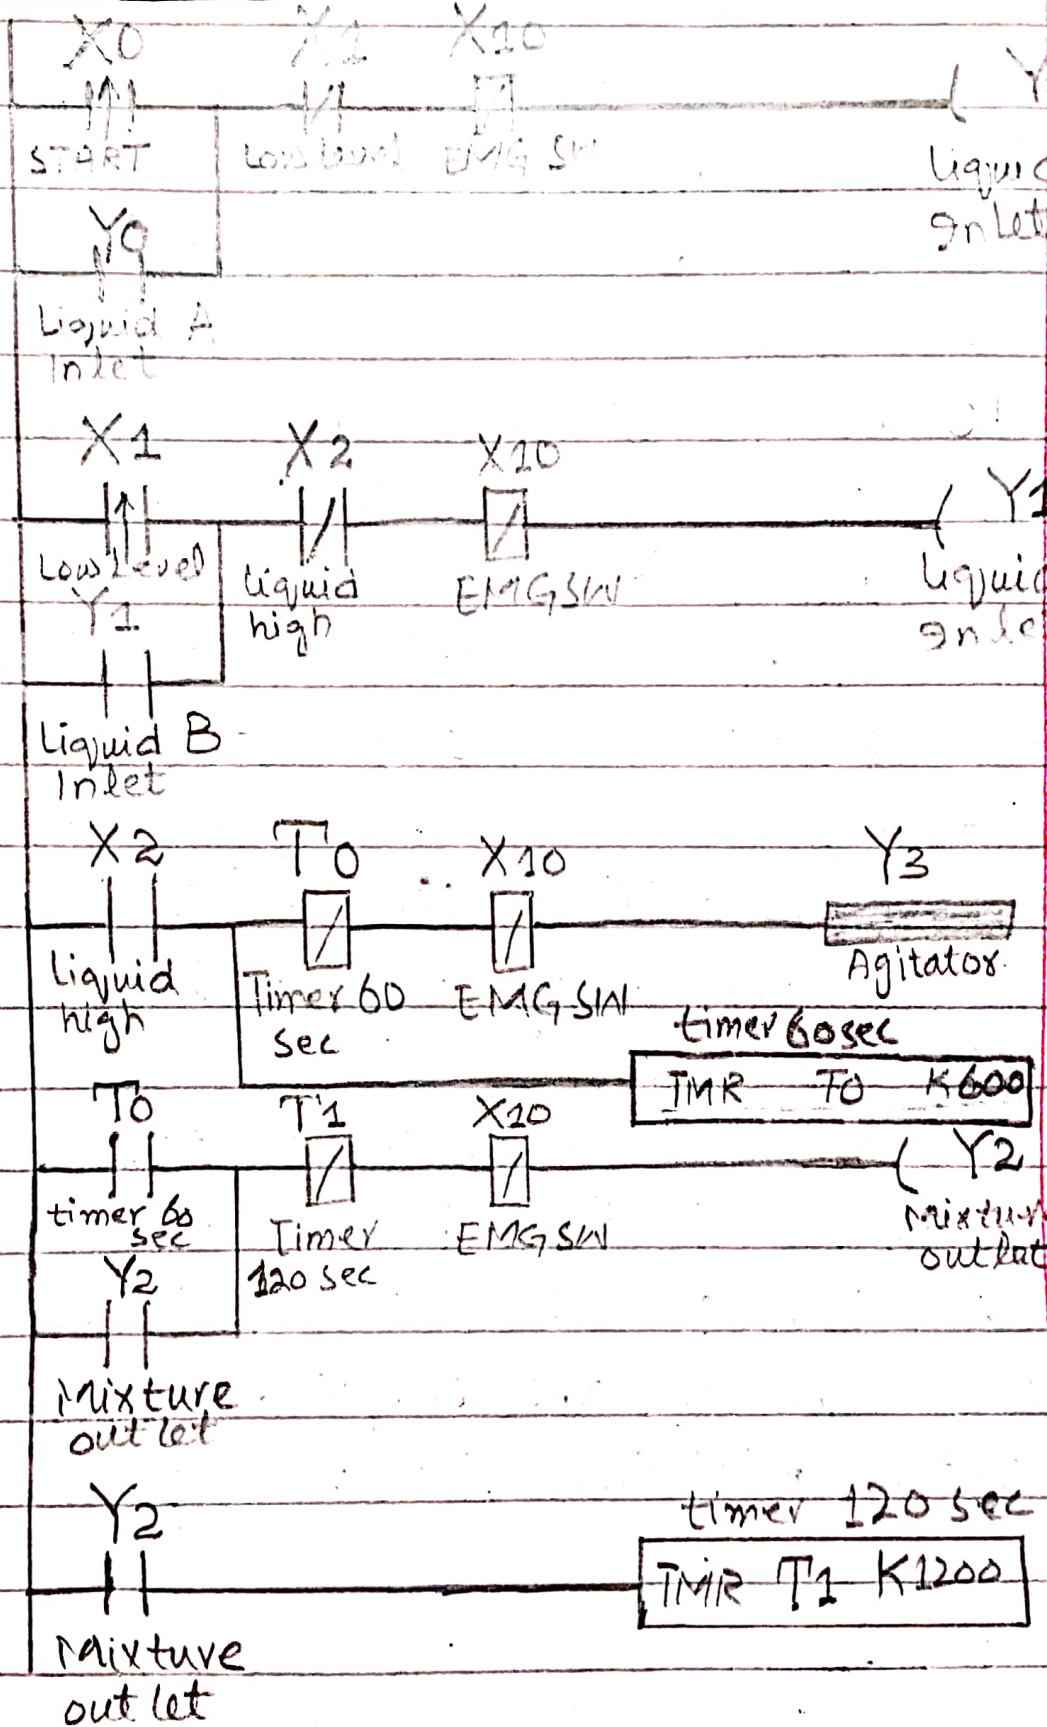 X0 X1 X10
Y
START Low Level EMG SW
Liquid
Inlet
Y0
Liquid A
Inlet
X1 X2 X10
Y1
Low Level Liquid high EMG SW
Liquid
Inle
Y1
Liquid B
Inlet
X2 T0 X10 Y3
Liquid high Timer 60 sec EMG SW Agitator
timer 60sec
TMR T0 K600
T0 T1 X10 Y2
timer 60 sec Timer 120 sec EMG SW Mixtur
outlet
Y2
Mixture
outlet
Y2
timer 120 sec
TMR T1 K1200
Mixture
outlet